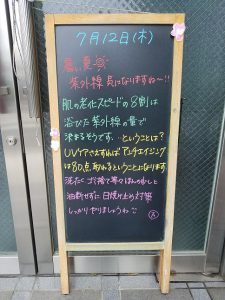 7月12日(木)
暑い夏
紫外線気になりますね〜!!
肌の老化スピードの8割は
浴びた紫外線の量で
決まるそうです。ということは?
UVケアさえすればアンチエイジング
は80点取れるということになります
洗たく ゴミ捨て等々ほんの少しと
油断せずに 日焼け止め対策
しっかりやりましょうね